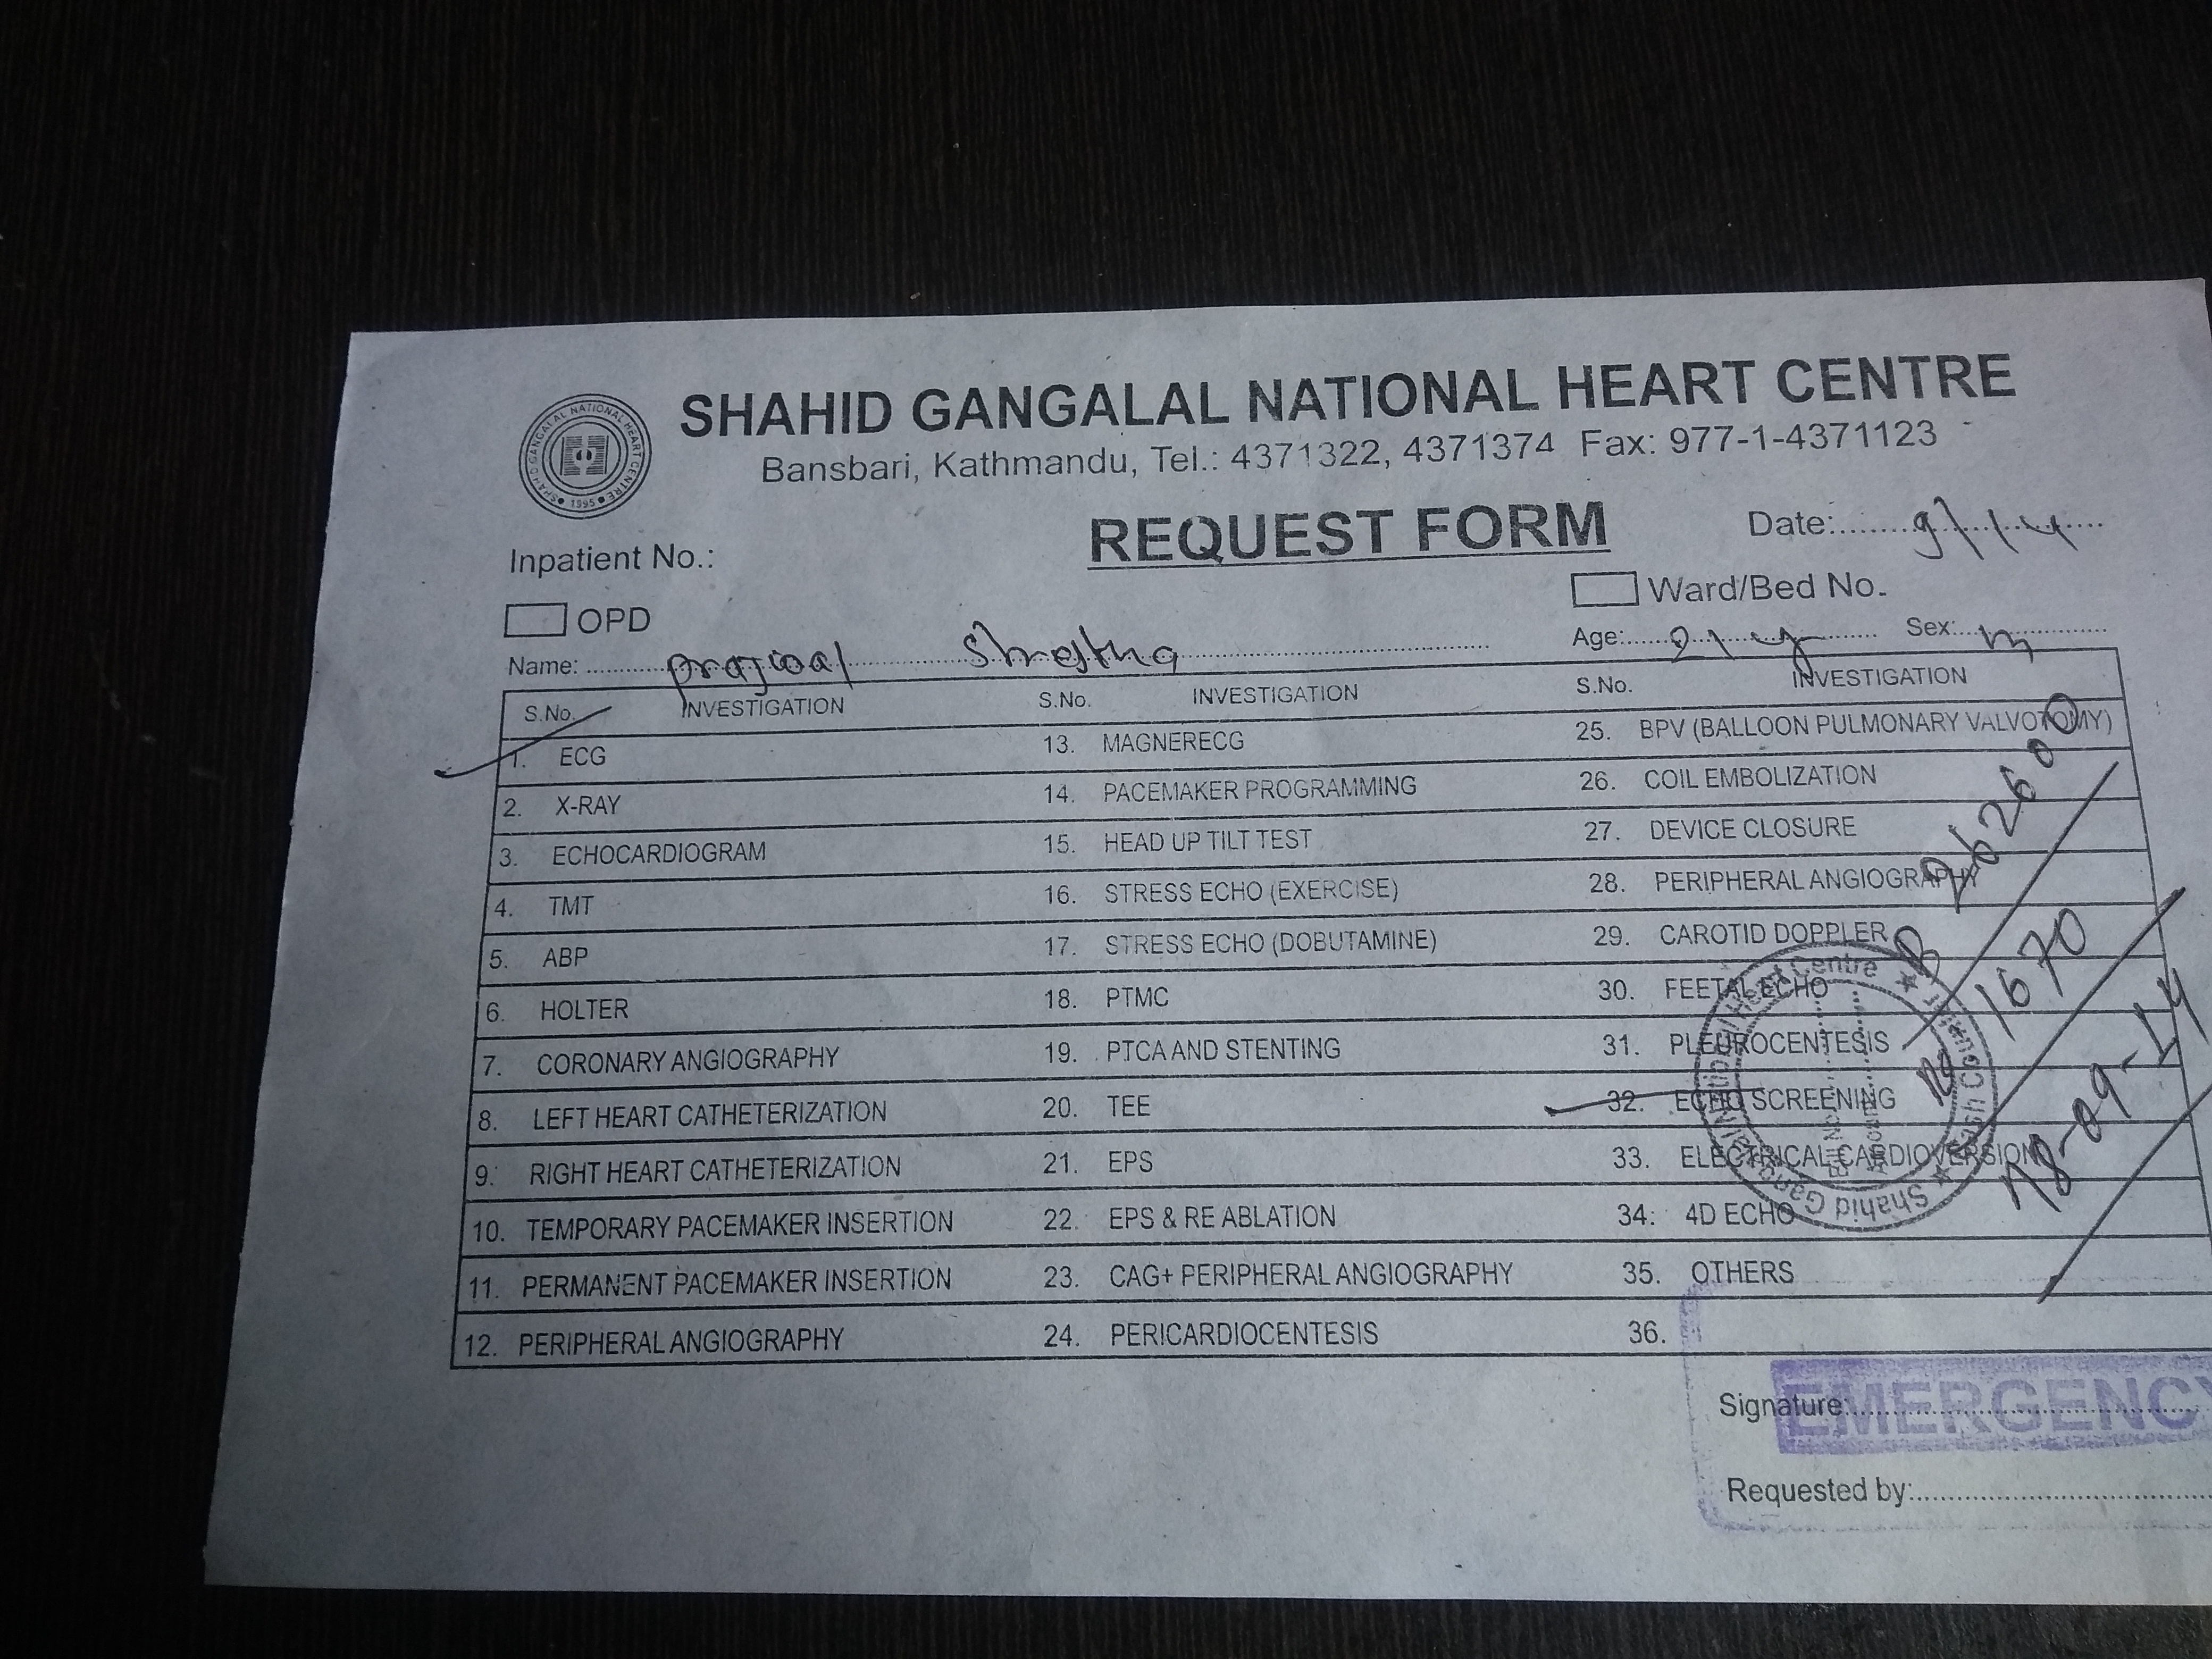 SHAHID GANGALAL NATIONAL HEART CENTRE
Bansbari, Kathmandu, Tel.: 4371322, 4371374 Fax: 977-1-4371123
SHAHID GANGALAL NATIONAL HEART CENTRE 1995
REQUEST FORM
Inpatient No.:
Date: 9/14
OPD
Ward/Bed No.
Name: prajwal Shrestha Age: 21 yr Sex: M
S.No. INVESTIGATION S.No. INVESTIGATION S.No. INVESTIGATION
1. ECG 13. MAGNERECG 25. BPV (BALLOON PULMONARY VALVOTOMY)
2. X-RAY 14. PACEMAKER PROGRAMMING 26. COIL EMBOLIZATION
3. ECHOCARDIOGRAM 15. HEAD UP TILT TEST 27. DEVICE CLOSURE
4. TMT 16. STRESS ECHO (EXERCISE) 28. PERIPHERAL ANGIOGRAPHY
5. ABP 17. STRESS ECHO (DOBUTAMINE) 29. CAROTID DOPPLER
6 HOLTER 18. PTMC 30. FEETAL ECHO
7. CORONARY ANGIOGRAPHY 19. PTCA AND STENTING 31. PLEUROCENTESIS
8. LEFT HEART CATHETERIZATION 20. TEE 32. ECHO SCREENING
9. RIGHT HEART CATHETERIZATION 21. EPS 33. ELECTRICAL CARDIOVERSION
10. TEMPORARY PACEMAKER INSERTION 22. EPS & RE ABLATION 34: 4D ECHO
11. PERMANENT PACEMAKER INSERTION 23. CAG+ PERIPHERAL ANGIOGRAPHY 35. OTHERS
12. PERIPHERAL ANGIOGRAPHY 24. PERICARDIOCENTESIS 36.
Shahid Gangalal National Heart Centre
1670
Signature:
EMERGENCY
Requested by: